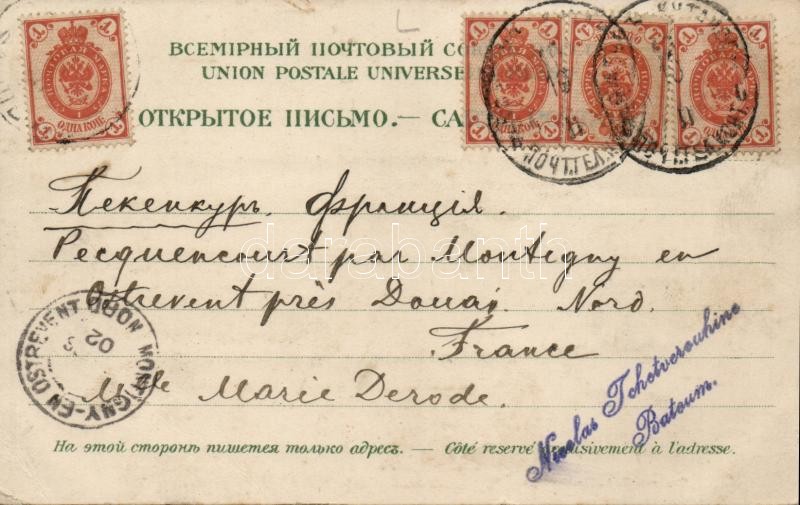 ВСЕМІРНЫЙ ПОЧТОВЫЙ СО
UNION POSTALE UNIVERSE
ОТКРЫТОЕ ПИСЬМО.— CA
ПОЧТОВАЯ МАРКА
ОДНА КОП.
Пекенкуръ. Франція.
Pecquencourt par Montigny en
Ostrevent près Douai. Nord.
France
Mlle Marie Derode.
MONTIGNY-EN-OSTREVENT
02
Nicolas Tchetverouhine
Batoum.
На этой сторонѣ пишется только адресъ. — Côté réservé exclusivement à l'adresse.
darabanth